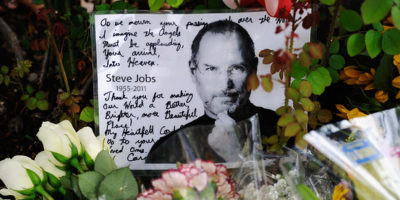 As we mourn your passing
I imagine the Angels
Must be applauding,
Your arrival
Into Heaven.
Steve Jobs
1955-2011
Thank you for making
Our World a Better,
Brighter, more Beautiful
Place!
My Heartfelt
to your